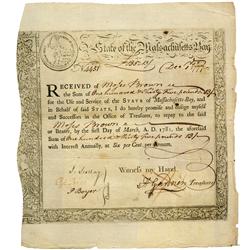 State of the Massachusetts-Bay
RECEIVED of Moses Brown
the Sum of One hundred & thirty five pounds 13/
for the Use and Service of the STATE of Massachusetts-Bay, and
in Behalf of said STATE, I do hereby promise and oblige myself
and Successors in the Office of Treasurer, to repay to the said
Moses Brown
or Bearer, by the first Day of March, A. D. 1781, the aforesaid
Sum of One hundred & thirty five pounds 13/
with Interest Annually, at Six per Cent. per Annum.
Witness my Hand,
H Gardner Treasurer